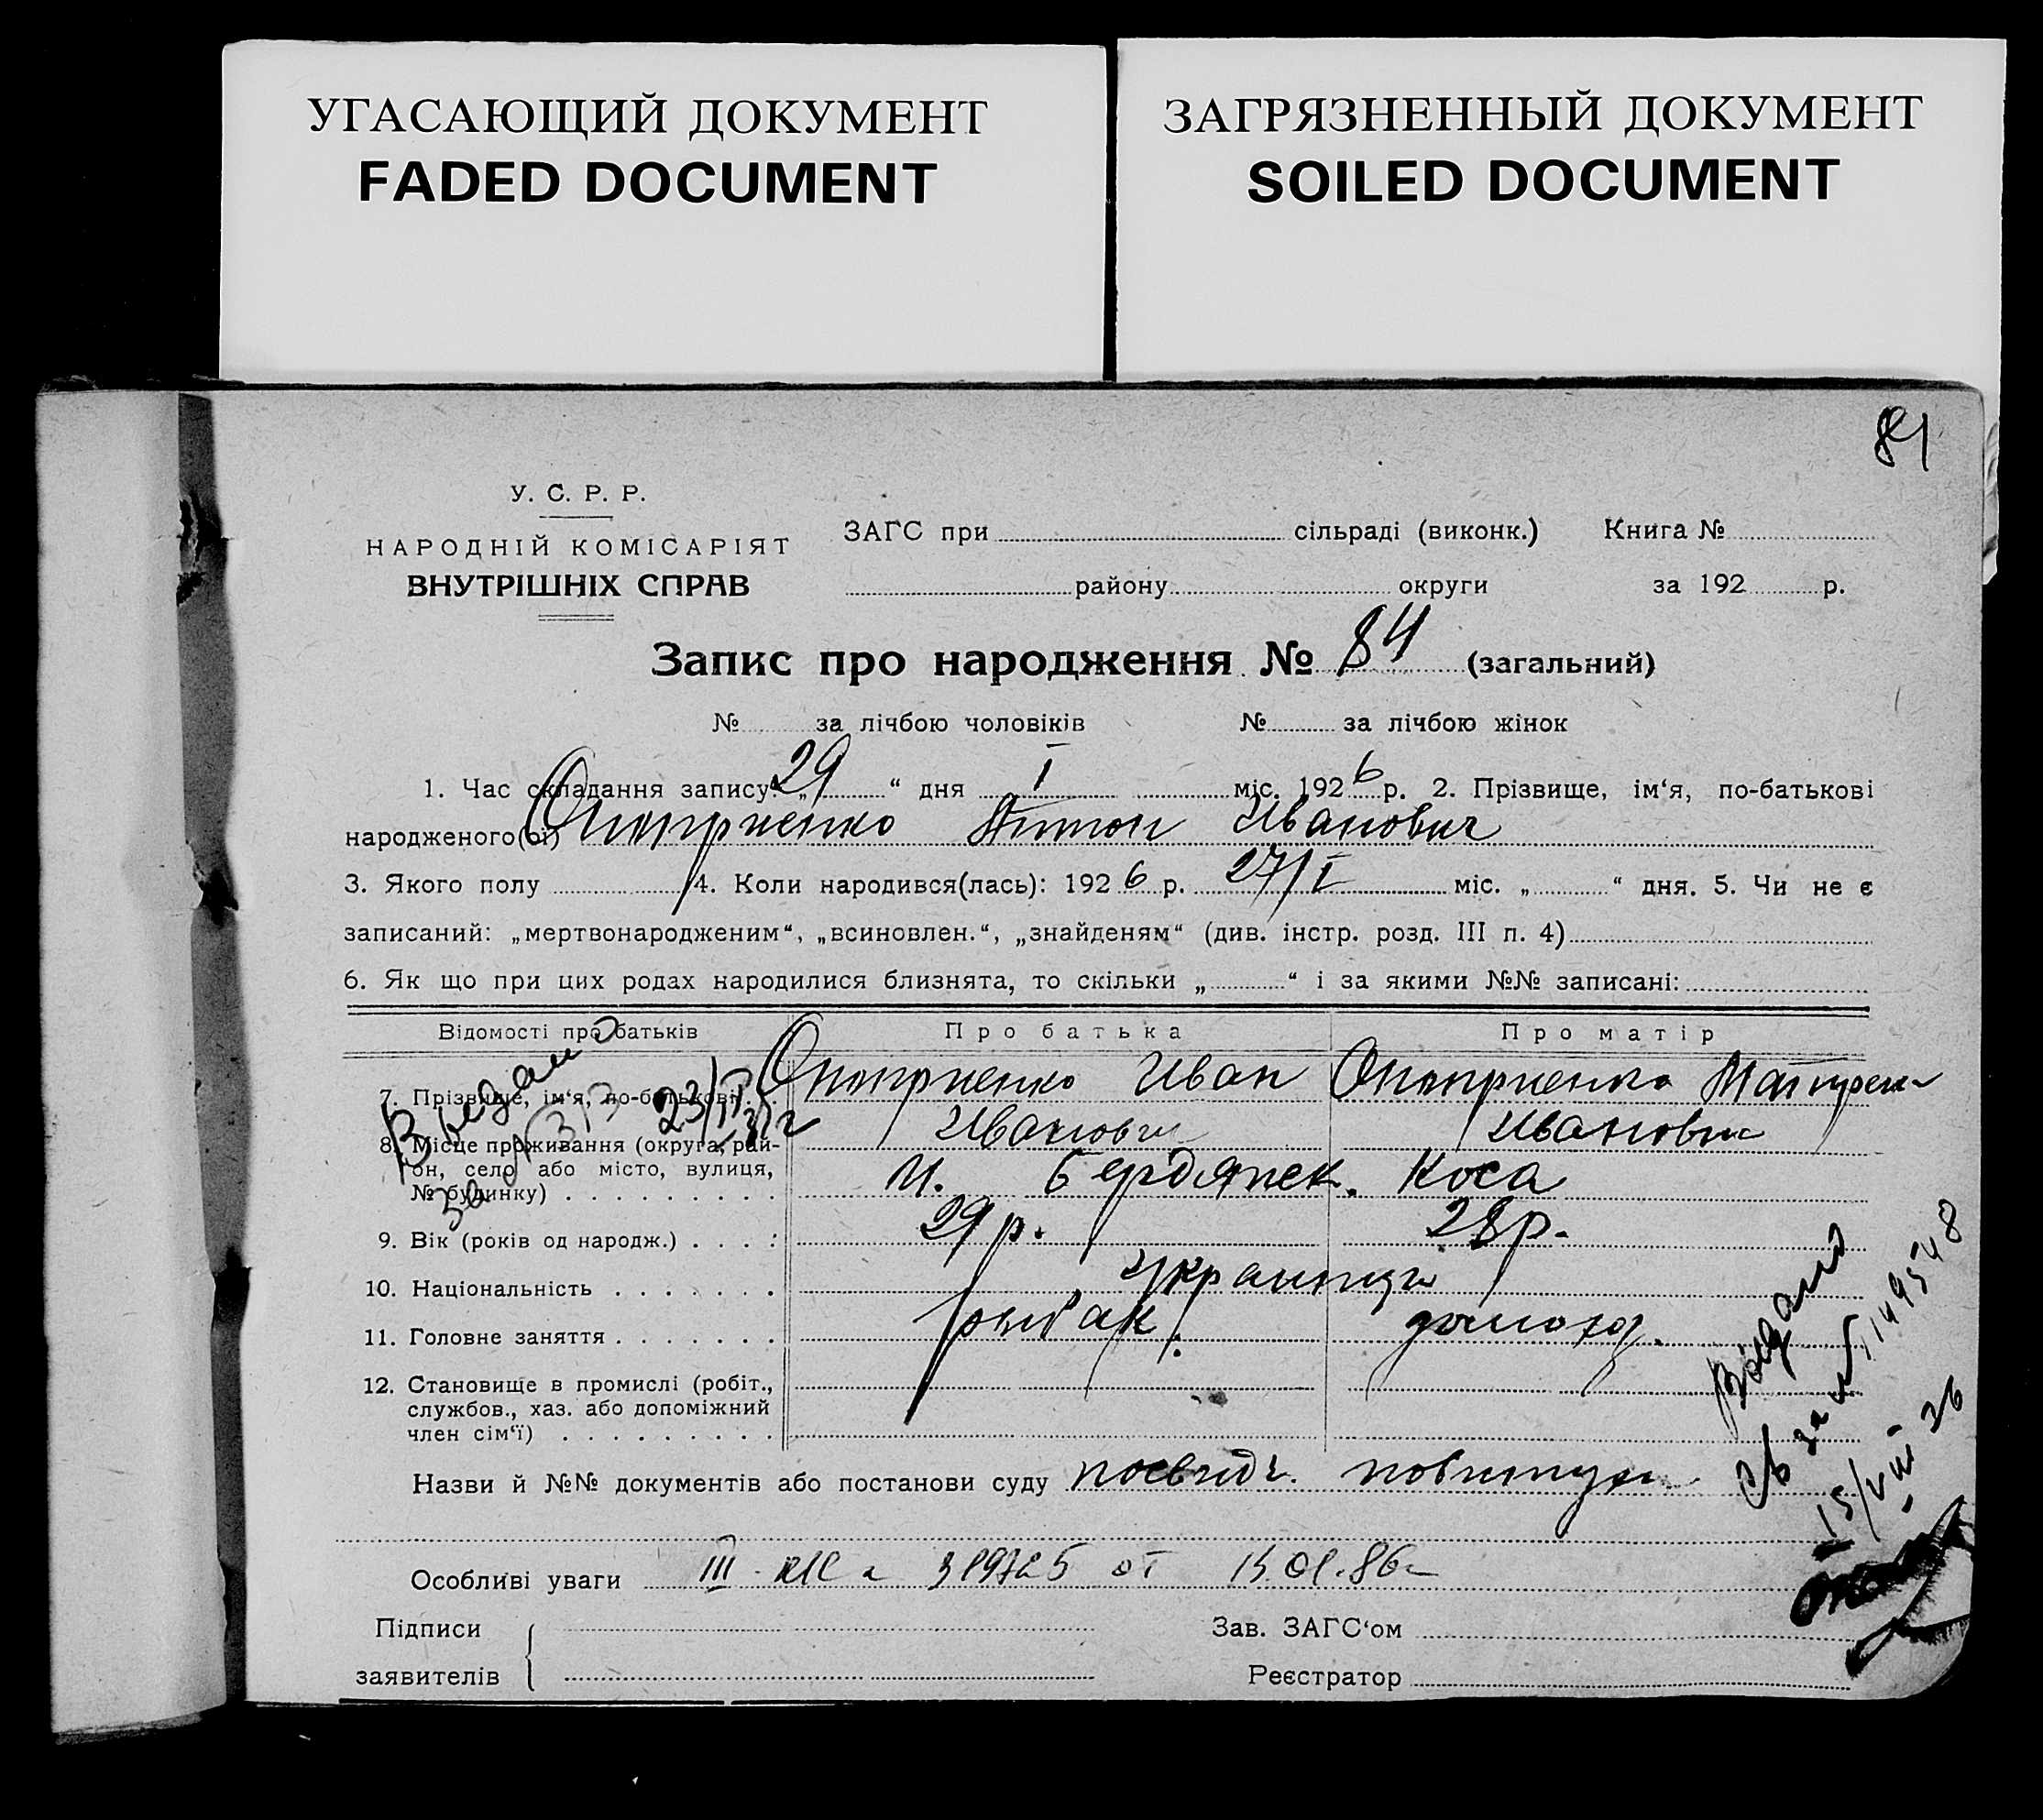 УГАСАЮЩИЙ ДОКУМЕНТ
FADED DOCUMENT
ЗАГРЯЗНЕННЫЙ ДОКУМЕНТ
SOILED DOCUMENT
84
У. С. Р. Р.
НАРОДНІЙ КОМІСАРІЯТ
ВНУТРІШНІХ СПРАВ
ЗАГС при сільраді (виконк.) Книга №
району округи за 192 р.
Запис про народження № 84 (загальний)
№ за лічбою чоловіків № за лічбою жінок
1. Час складання запису: „29“ дня I міс. 1926 р. 2. Прізвище, ім‘я, по-батькові
народженого(ої) Оноприенко Антон Иванович
3. Якого полу 4. Коли народився(лась): 1926 р. 27/I міс. „ “ дня. 5. Чи не є
записаний: „мертвонародженим“, „всиновлен.“, „знайденям“ (див. інстр. розд. III п. 4)
6. Як що при цих родах народилися близнята, то скільки „ “ і за якими №№ записані:
Відомості про батьків Про батька Про матір
7. Прізвище, ім‘я, по-батькові Оноприенко Иван Оноприенко
8. Місце проживання (округа, рай-
он, село або місто, вулиця,
№ будинку) Бердянск. Коса
9. Вік (років од народж.) 29 р. 28 р.
10. Національність украинци
11. Головне заняття рыбак. домохоз.
12. Становище в промислі (робіт.,
службов., хаз. або допоміжний
член сім‘ї)
Назви й №№ документів або постанови суду посвидч.
Особливі уваги III от 01.86
Підписи
заявителів
Зав. ЗАГС‘ом
Реєстратор
Видано
за №
15/VIII 26